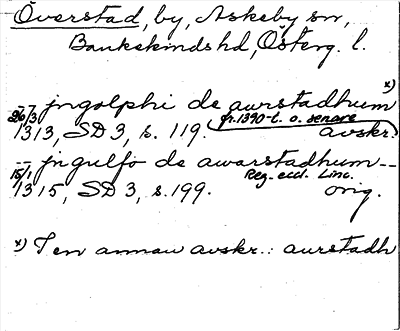 Överstad, by, Askeby sn,
Bankekinds hd, Österg. l.
x)
-- jngolphi de aurstadhum
26/3 fr. 1390-t. o. senare
1313, SD 3, s. 119. avskr.
-- jngulfo de awarstadhum --
15/1 Reg. eccl. Linc.
1315, SD 3, s. 199. orig.
x) I en annan avskr.: aurstadh